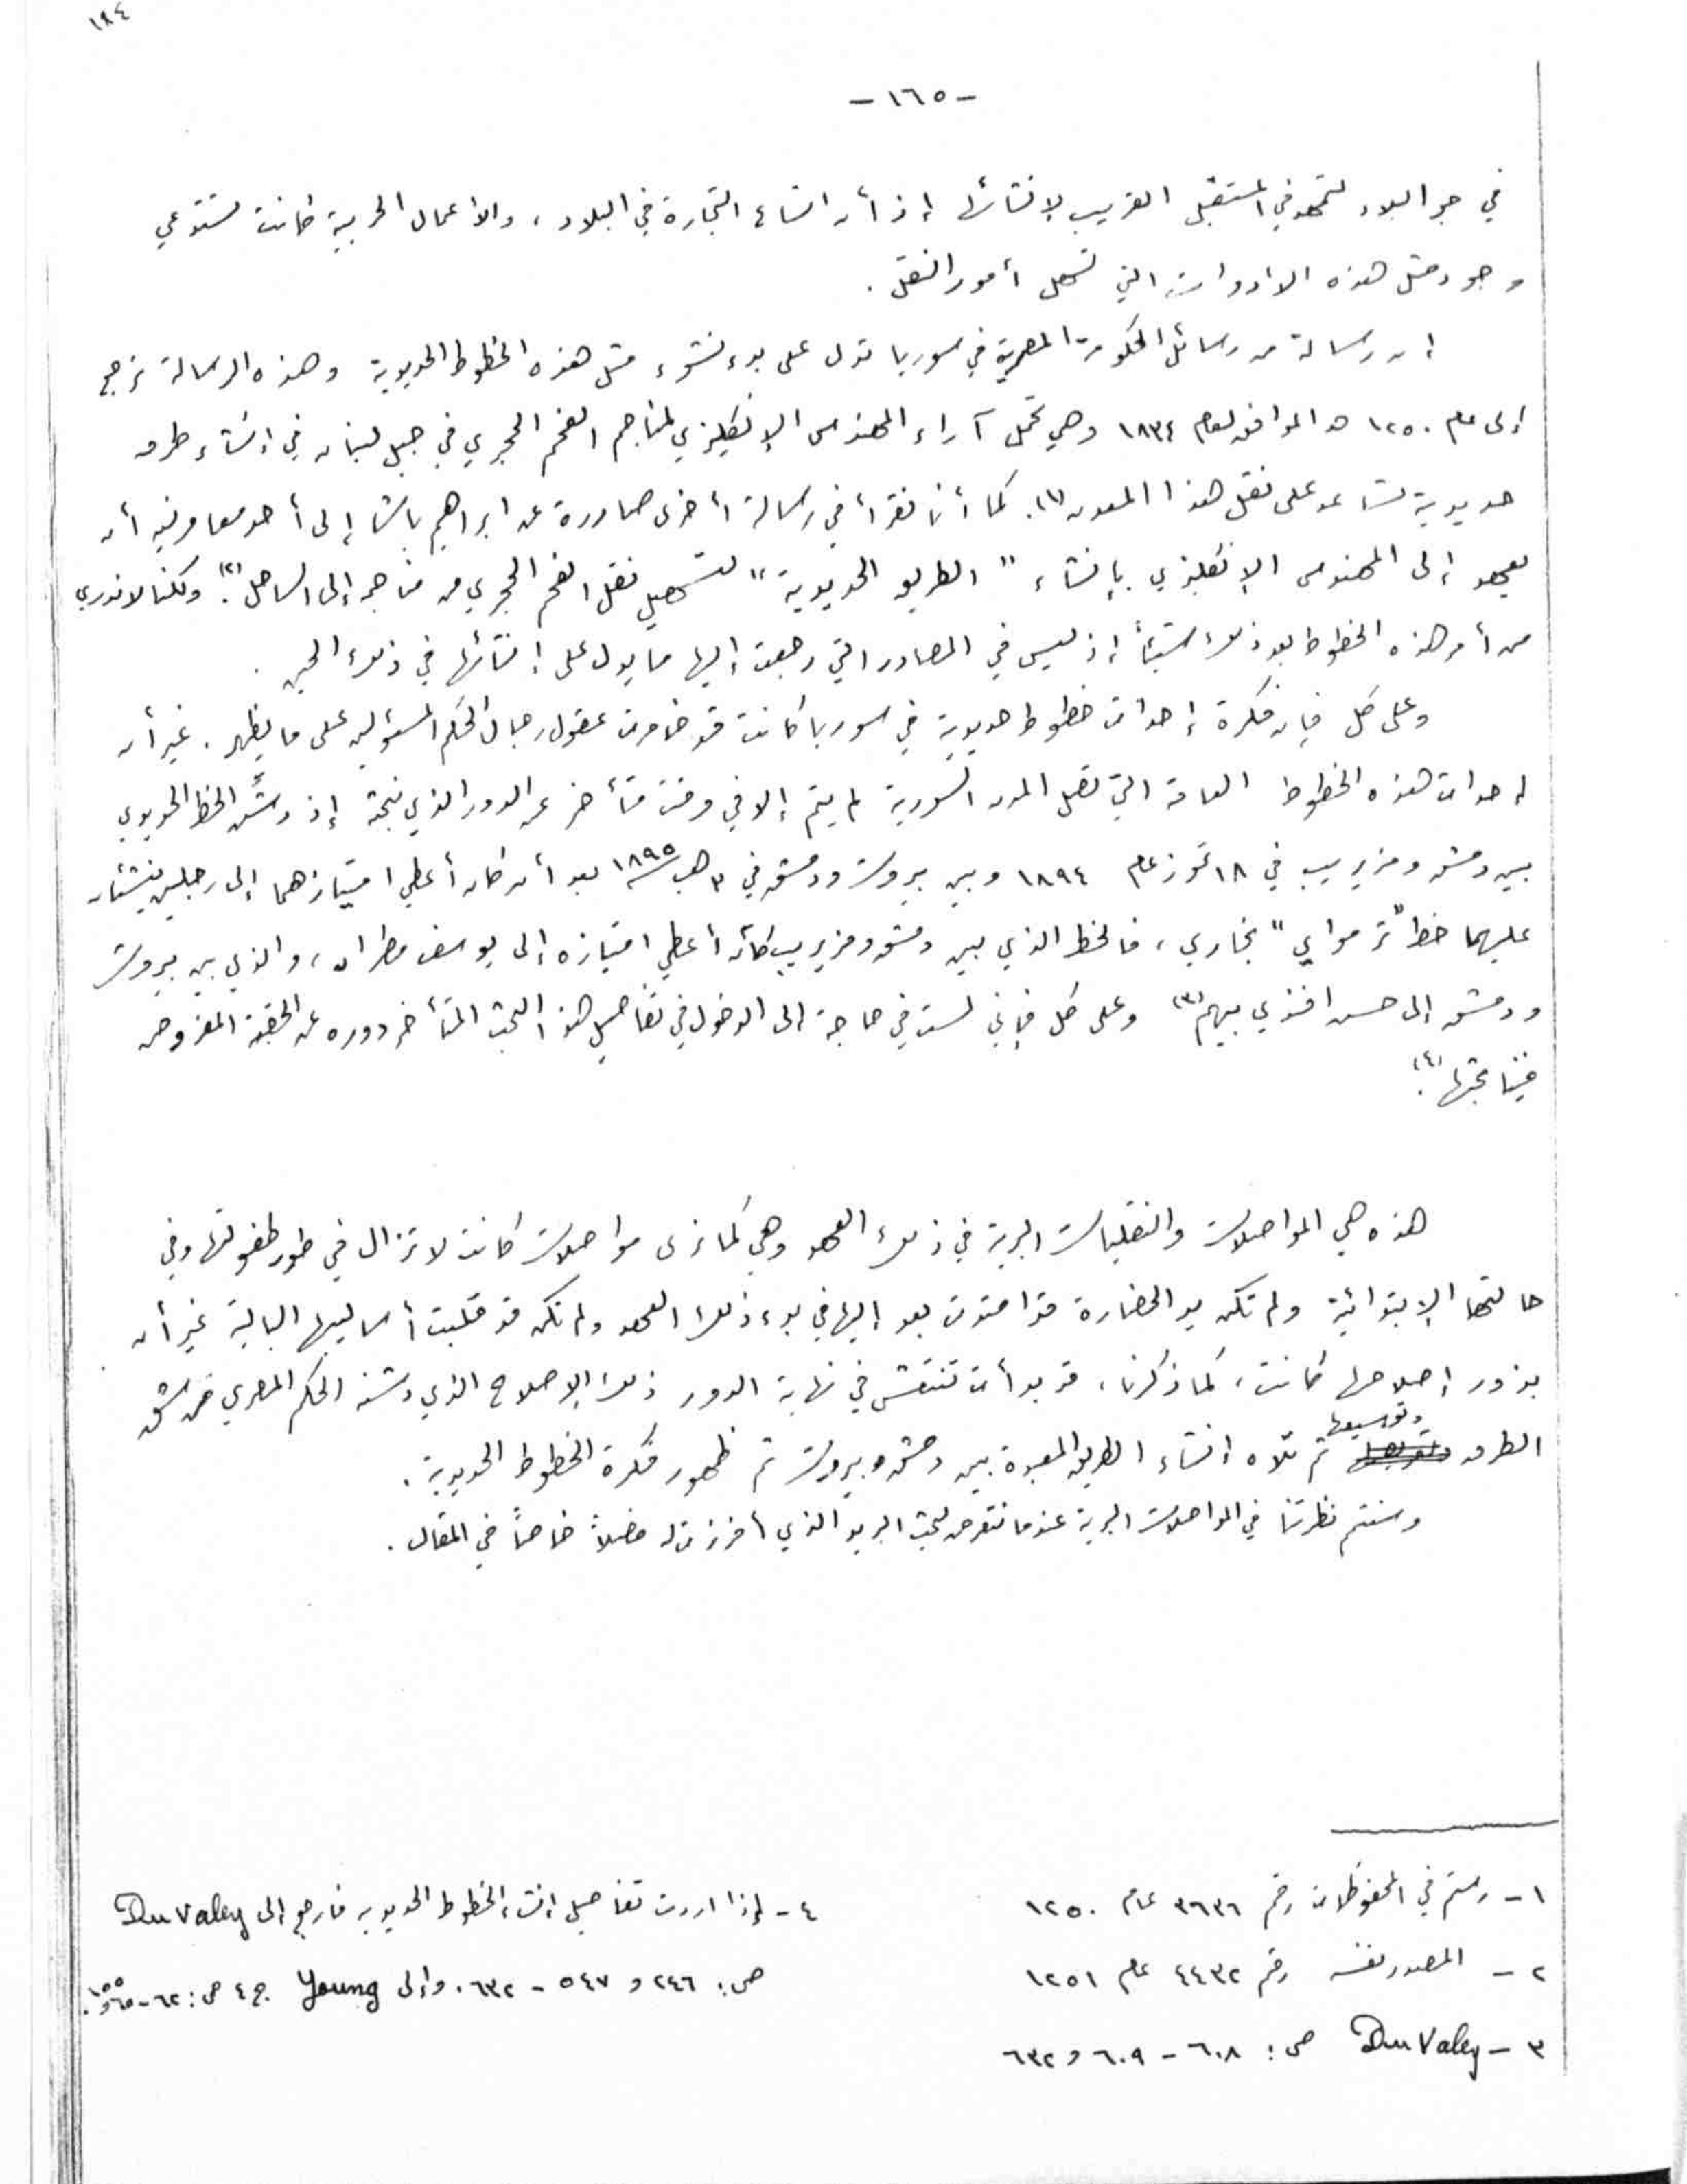 ١٨٤
-١٦٥-
في جو البلاد لتمهد في المستقبل القريب لإنشائها إذ أن اتساع التجارة في البلاد، والأعمال الحربية كانت تستدعي
وجود مثل هذه الادوات التي تسهل أمور النقل.
ان رسالة من رسائل الحكومة المصرية في سوريا تدل على بدء نشوء مثل هذه الخطوط الحديدية وهذه الرسالة ترجع
إلى عام ١٢٥٠ هـ الموافق لعام ١٨٣٤ وهي تحمل آراء المهندس الإنكليزي لمناجم الفحم الحجري في جبل لبنان في إنشاء طرق
حديدية تساعد على نقل هذا المعدن(١). كما أننا نقرأ في رسالة أخرى صادرة عن ابراهيم باشا إلى أحد معاونيه أن
يعهد إلى المهندس الإنكليزي بإنشاء "الطريق الحديدية" لتسهيل نقل الفحم الحجري من مناجمه إلى الساحل(٢). ولكننا لا ندري
من أمر هذه الخطوط بعد ذلك شيئاً إذ ليس في المصادر التي رجعت إليها ما يدل على إنشائها في ذلك الحين.
وعلى كل فإن فكرة إحداث خطوط حديدية في سوريا كانت قد خامرت عقول رجال الحكم المسؤولين على ما يظهر. غير أن
إحداث هذه الخطوط العامة التي تصل المدن السورية لم يتم إلا في وقت متأخر عن الدور الذي نبحثه إذ دشّن الخط الحديدي
بين دمشق ومزيريب في ١٨ تموز عام ١٨٩٤ وبين بيروت ودمشق في ٣ آب ١٨٩٥ بعد أن كان أعطي امتيازهما إلى رجلين ينشئان
عليهما خط "ترمواي" بخاري، فالخط الذي بين دمشق ومزيريب كان أعطي امتيازه إلى يوسف مطران، والذي بين بيروت
ودمشق إلى حسن افندي بيهم(٣) وعلى كل فإني لست في حاجة إلى الدخول في تفاصيل هذا البحث المتأخر دوره عن الحقبة المفروض
فينا بحثها(٤).
هذه هي المواصلات والنقليات البرية في ذلك العهد وهي كما نرى مواصلات كانت لا تزال في طور طفولتها وفي
حالتها الإبتدائية ولم تكن يد الحضارة قد امتدت بعد إليها في بدء ذلك العهد ولم تكن قد قلبت أساليبها البالية غير أن
بذور إصلاحها كانت، كما ذكرنا، قد بدأت تنتعش في نهاية الدور ذلك الإصلاح الذي دشنه الحكم المصري في شق
الطرق وتوسيعها ثم تلاه إنشاء الطريق المعبدة بين دمشق وبيروت ثم ظهور فكرة الخطوط الحديدية.
وستتم نظرتنا في المواصلات البرية عندما نتعرض لبحث البريد الذي أفرزنا له فصلاً خاصاً في المقال.
١- رستم في المحفوظات رقم ٣٦٣٦ عام ١٢٥٠
٢- المصدر نفسه رقم ٤٤٣٢ عام ١٢٥١
٣- Du Valey ص: ٦٠٨ - ٦٠٩ و ٦٣٢
٤- إذا اردت تفاصيل إنشاء الخطوط الحديدية فارجع إلى Du Valey
ص: ٢٤٦ و ٥٤٧ - ٦٣٢. وإلى Young ج ٤ ص: ٦٢-